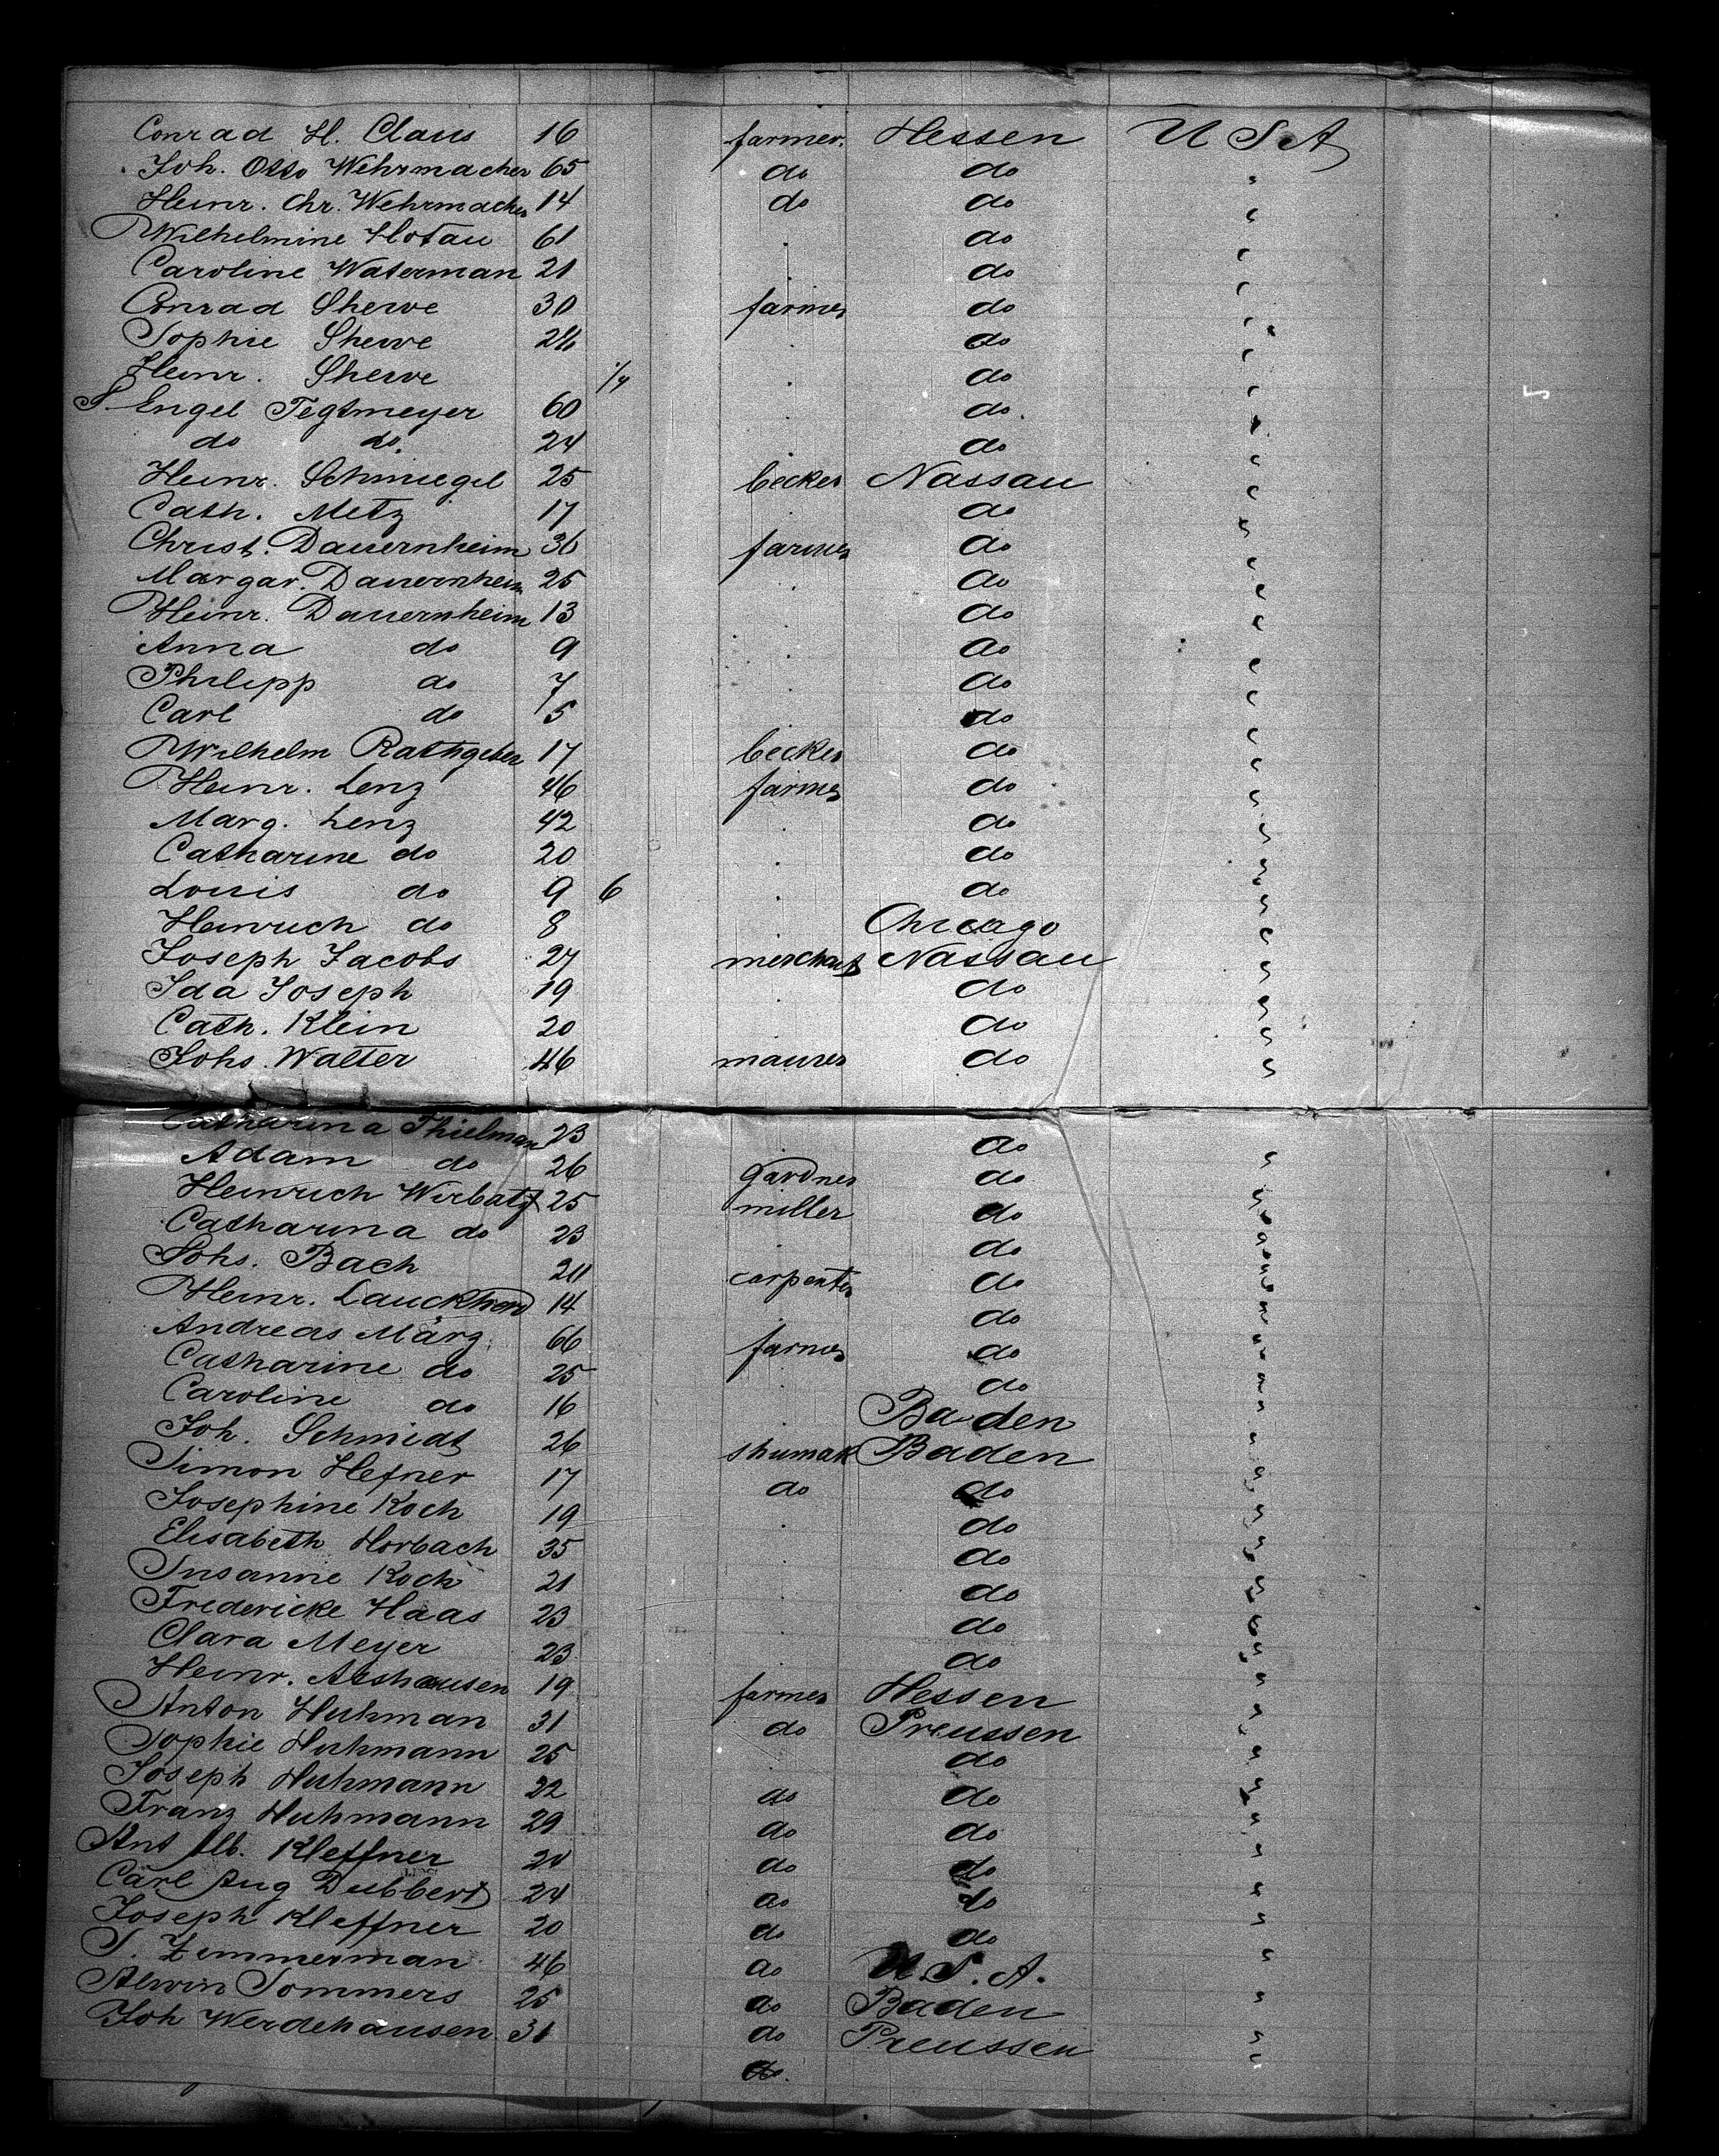 Conrad H. Claus 16 farmer. Hessen U S A
Joh. Otto Wehrmacher 65 do do "
Heinr. Chr. Wehrmacher 14 do do "
Wilhelmine Hotau 61 do "
Caroline Waterman 21 do "
Conrad Sherve 30 farmer do "
Sophie Sherve do "
Heinr. Sherve do "
S. Engel Tegtmeyer 60 do. "
do do. 24 do "
Heinr. Schmiegel 25 becker Nassau "
Cath. Metz 17 do "
Christ. Dauernheim 36 farmer do "
Margar. Dauernheim 25 do "
Heinr. Dauernheim 13 do "
Anna do 9 do "
Philipp do 7 do "
Carl do 5 do "
Wilhelm Rathgeber 17 becker do "
Heinr. Lenz 46 farmer do "
Marg. Lenz 42 do "
Catharine do 20 do "
Louis do 9 6 do "
Heinrich do 8 Chicago "
Joseph Jacobs 27 merchant Nassau "
Ida Joseph 19 do "
Cath. Klein 20 do "
Johs. Walter 46 maurer do "
Catharina Thielman 23 do "
Adam do 26 gardner do "
Heinrich Wirbatz 25 miller do "
Catharina do 23 do "
Johs. Bach carpenter do "
Heinr. Lauckhard 14 do "
Andreas März 66 farmer do "
Catharine do 25 do "
Caroline do 16 Baden "
Joh. Schmidt 26 shumak Baden "
Simon Hefner 17 do do "
Josephine Koch 19 do "
Elisabeth Horbach 35 do "
Susanne Koch 21 do "
Fredericke Haas 23 do "
Clara Meyer 23 do "
Heinr. Aeshausen 19 farmer Hessen "
Anton Huhman 31 do Preussen "
Sophie Huhmann 25 do "
Joseph Huhmann 22 do do "
Franz Huhmann 29 do do "
Ant Alb. Kleffner do do "
Carl Aug Dubbert 24 do do "
Joseph Kleffner 20 do do "
S. Zimmerman 46 do U.S.A. "
Alwin Sommers 25 do Baden "
Joh Werdehausen 31 do Preussen "
do.